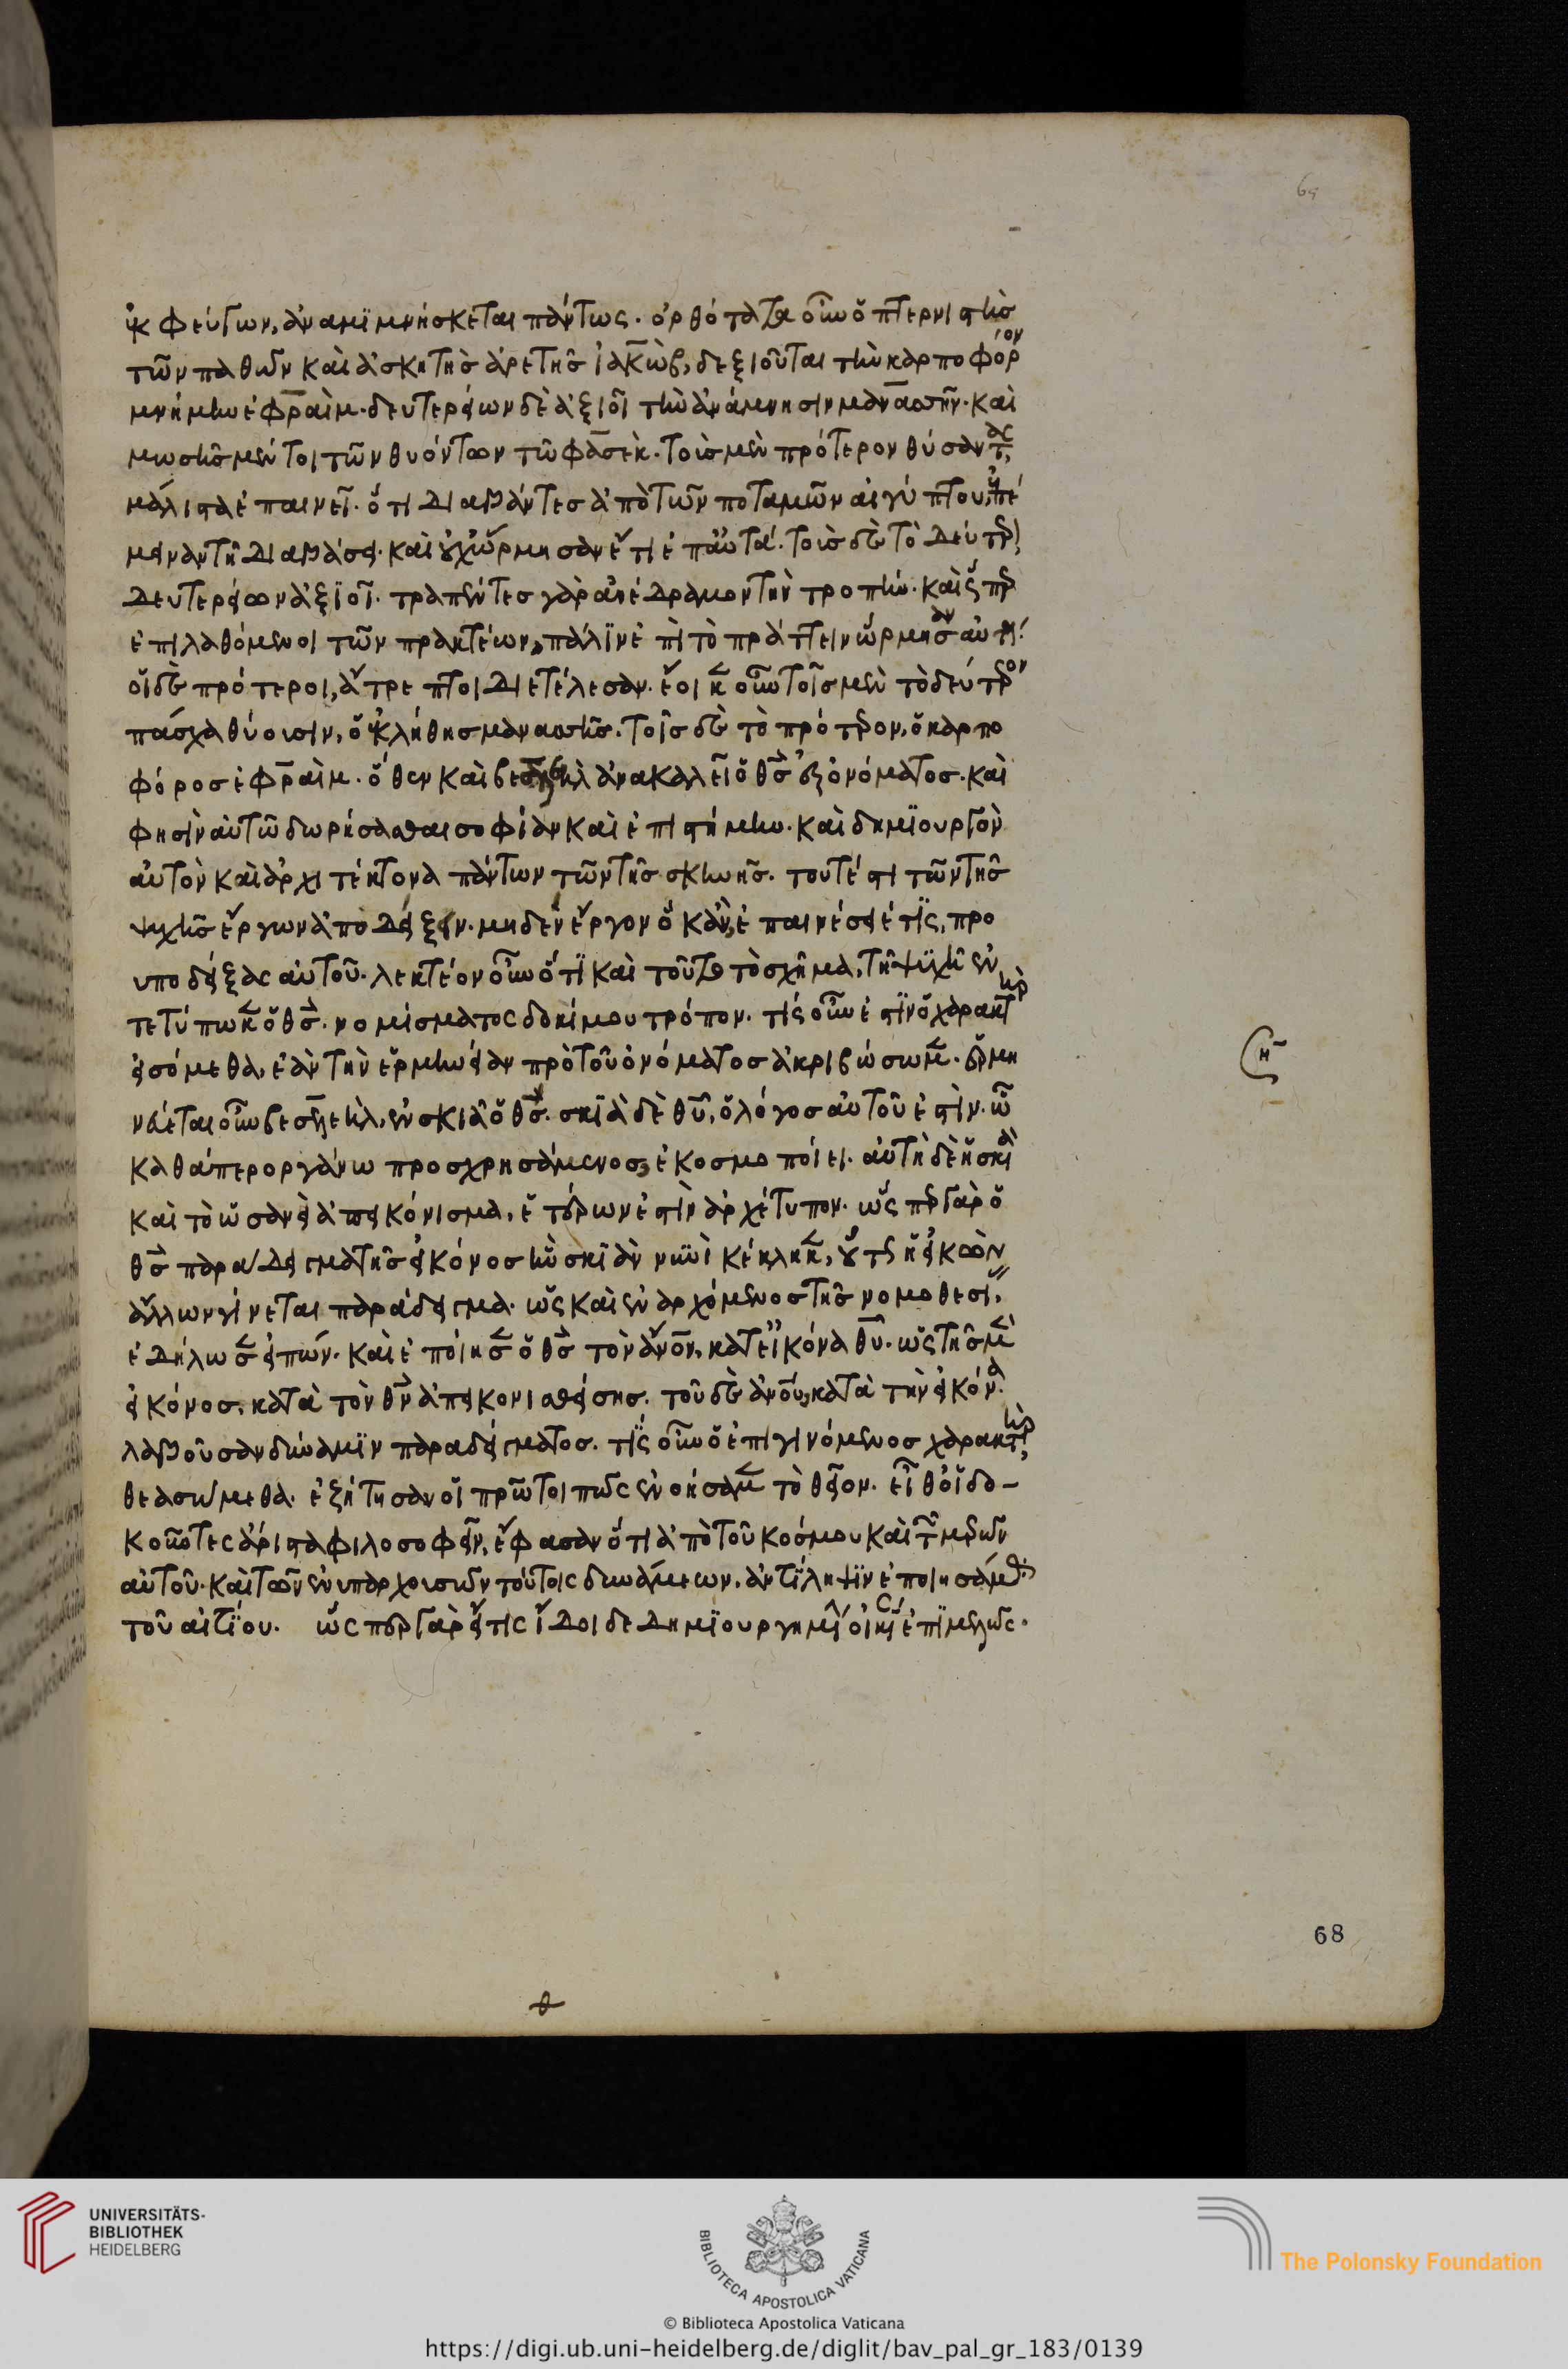 ἐκφεύγων, ἀναμϊμνήσκεται πάντως. ὀρθότατα οὖν ὁ πτερνιστὴς
τῶν παθῶν καὶ ἀσκητὴς ἀρετῆς ἰακὼβ, δεξιοῦται τὴν καρποφόρον
μνήμην ἐφραὶμ. δευτερείων δὲ ἀξιοῖ τὴν ἀνάμνησιν μανασσῆν. καὶ
μωσῆς μέντοι τῶν θυόντων τῶ φάσεκ. τοὺς μὲν πρότερον θύσαντας,
μάλιστα ἐπαινεῖ. ὅτι διαβάντες ἀπὸ τῶν ποταμῶν αἰγύπτου, ἐπέ
μειναν τῆ διαβάσει. καὶ οὐχ ὥρμησαν ἔτι ἐπ αὐτά. τοὺς δὲ τὸ δεύτερον,
δευτερείων ἀξϊοῖ. τραπέντες γὰρ ἀνέδραμον τὴν τροπὴν. καὶ ὥσπερ
ἐπιλαθόμενοι τῶν πρακτέων, πάλϊν ἐπὶ τὸ πράττειν ὥρμησαν αὐτά.
οἱ δὲ πρότεροι, ἄτρεπτοι διετέλεσαν. ἔοικεν οὖν τοῖς μὲν τὸ δεύτερον
πάσχα θύουσιν, ὁ ἐκλήθης μανασσῆς. τοῖς δὲ τὸ πρότερον, ὁ καρπο
φόρος ἐφραὶμ. ὅθεν καὶ βεσελεὴλ ἀνακαλεῖ ὁ θς ἐξ ὀνόματος. καὶ
φησὶν αὐτῶ δωρήσασθαι σοφίαν καὶ ἐπιστήμην. καὶ δημϊουργὸν
αὐτὸν καὶ ἀρχιτέκτονα πάντων τῶν τῆς σκηνῆς. τουτέστι τῶν τῆς
ψυχῆς ἔργων ἀποδείξειν. μηδὲν ἔργον ὃ κἂν ἐπαινέσειέ τϊς, προ
υποδείξας αὐτοῦ. λεκτέον οὖν ὅτϊ καὶ τοῦτο τὸ σχῆμα, τῆ ψϋχῆ ἐν
τετύπωκεν ὁ θς. νομίσματος δοκίμου τρόπον. τίς οὖν ἐστϊν ὁ χαρακτὴρ
εἰσόμεθα, ἐὰν τὴν ἑρμηνείαν πρὸ τοῦ ὀνόματος ἀκριβώσωμεν. ἑρμη
νεύεται οὖν βεσελεὴλ, ἐν σκιᾶ ὁ θς. σκϊὰ δὲ θυ, ὁ λόγος αὐτοῦ ἐστὶν. ὧ
καθάπερ οργάνω προσχρησάμενος, ἐκοσμοποίει. αὐτὴ δὲ ἡ σκιὰ
καὶ τὸ ὡσανεὶ ἀπεικόνισμα, ἑτέρων ἐστὶν ἀρχέτυπον. ὥσπερ γὰρ ὁ
θς παράδειγμα τῆς εἰκόνος ἣν σκϊὰν νυνὶ κέκληκεν, οὕτως ἡ εἰκὼν
ἄλλων γίνεται παράδειγμα. ὡς καὶ ἐναρχόμενος τῆς νομοθεσίας
ἐδήλωσεν εἰπών. καὶ ἐποίησεν ὁ θς τὸν ἄνον, κατ εἰκόνα θυ. ὡς τῆς μὲν
εἰκόνος, κατὰ τὸν θν ἀπεικονισθείσης. τοῦ δὲ ἀνου, κατὰ τὴν εἰκόνα
λαβοῦσαν δύναμϊν παραδείγματος. τϊς οὖν ὁ ἐπιγινόμενος χαρακτὴρ,
θεασώμεθα. ἐζήτησαν οἱ πρῶτοι πῶς ἐνοήσαμεν τὸ θεῖον. εἶθ οἱ δο–
κοῦντες ἄριστα φιλοσοφεῖν, ἔφασαν ὅτι ἀπὸ τοῦ κόσμου καὶ τῶν μερῶν
αὐτοῦ. καὶ τῶν ἐνυπαρχουσῶν τούτοις δυνάμεων, ἀντίληψϊν ἐποιησάμεθα
τοῦ αἰτϊου. ὥσπερ γὰρ εἴ τις ἴδοι δεδημϊουργημένην οἰκίαν ἐπϊμελῶς.
68
UNIVERSITÄTS-
BIBLIOTHEK
HEIDELBERG
BIBLIOTECA APOSTOLICA VATICANA
The Polonsky Foundation
© Biblioteca Apostolica Vaticana
https://digi.ub.uni-heidelberg.de/diglit/bav_pal_gr_183/0139